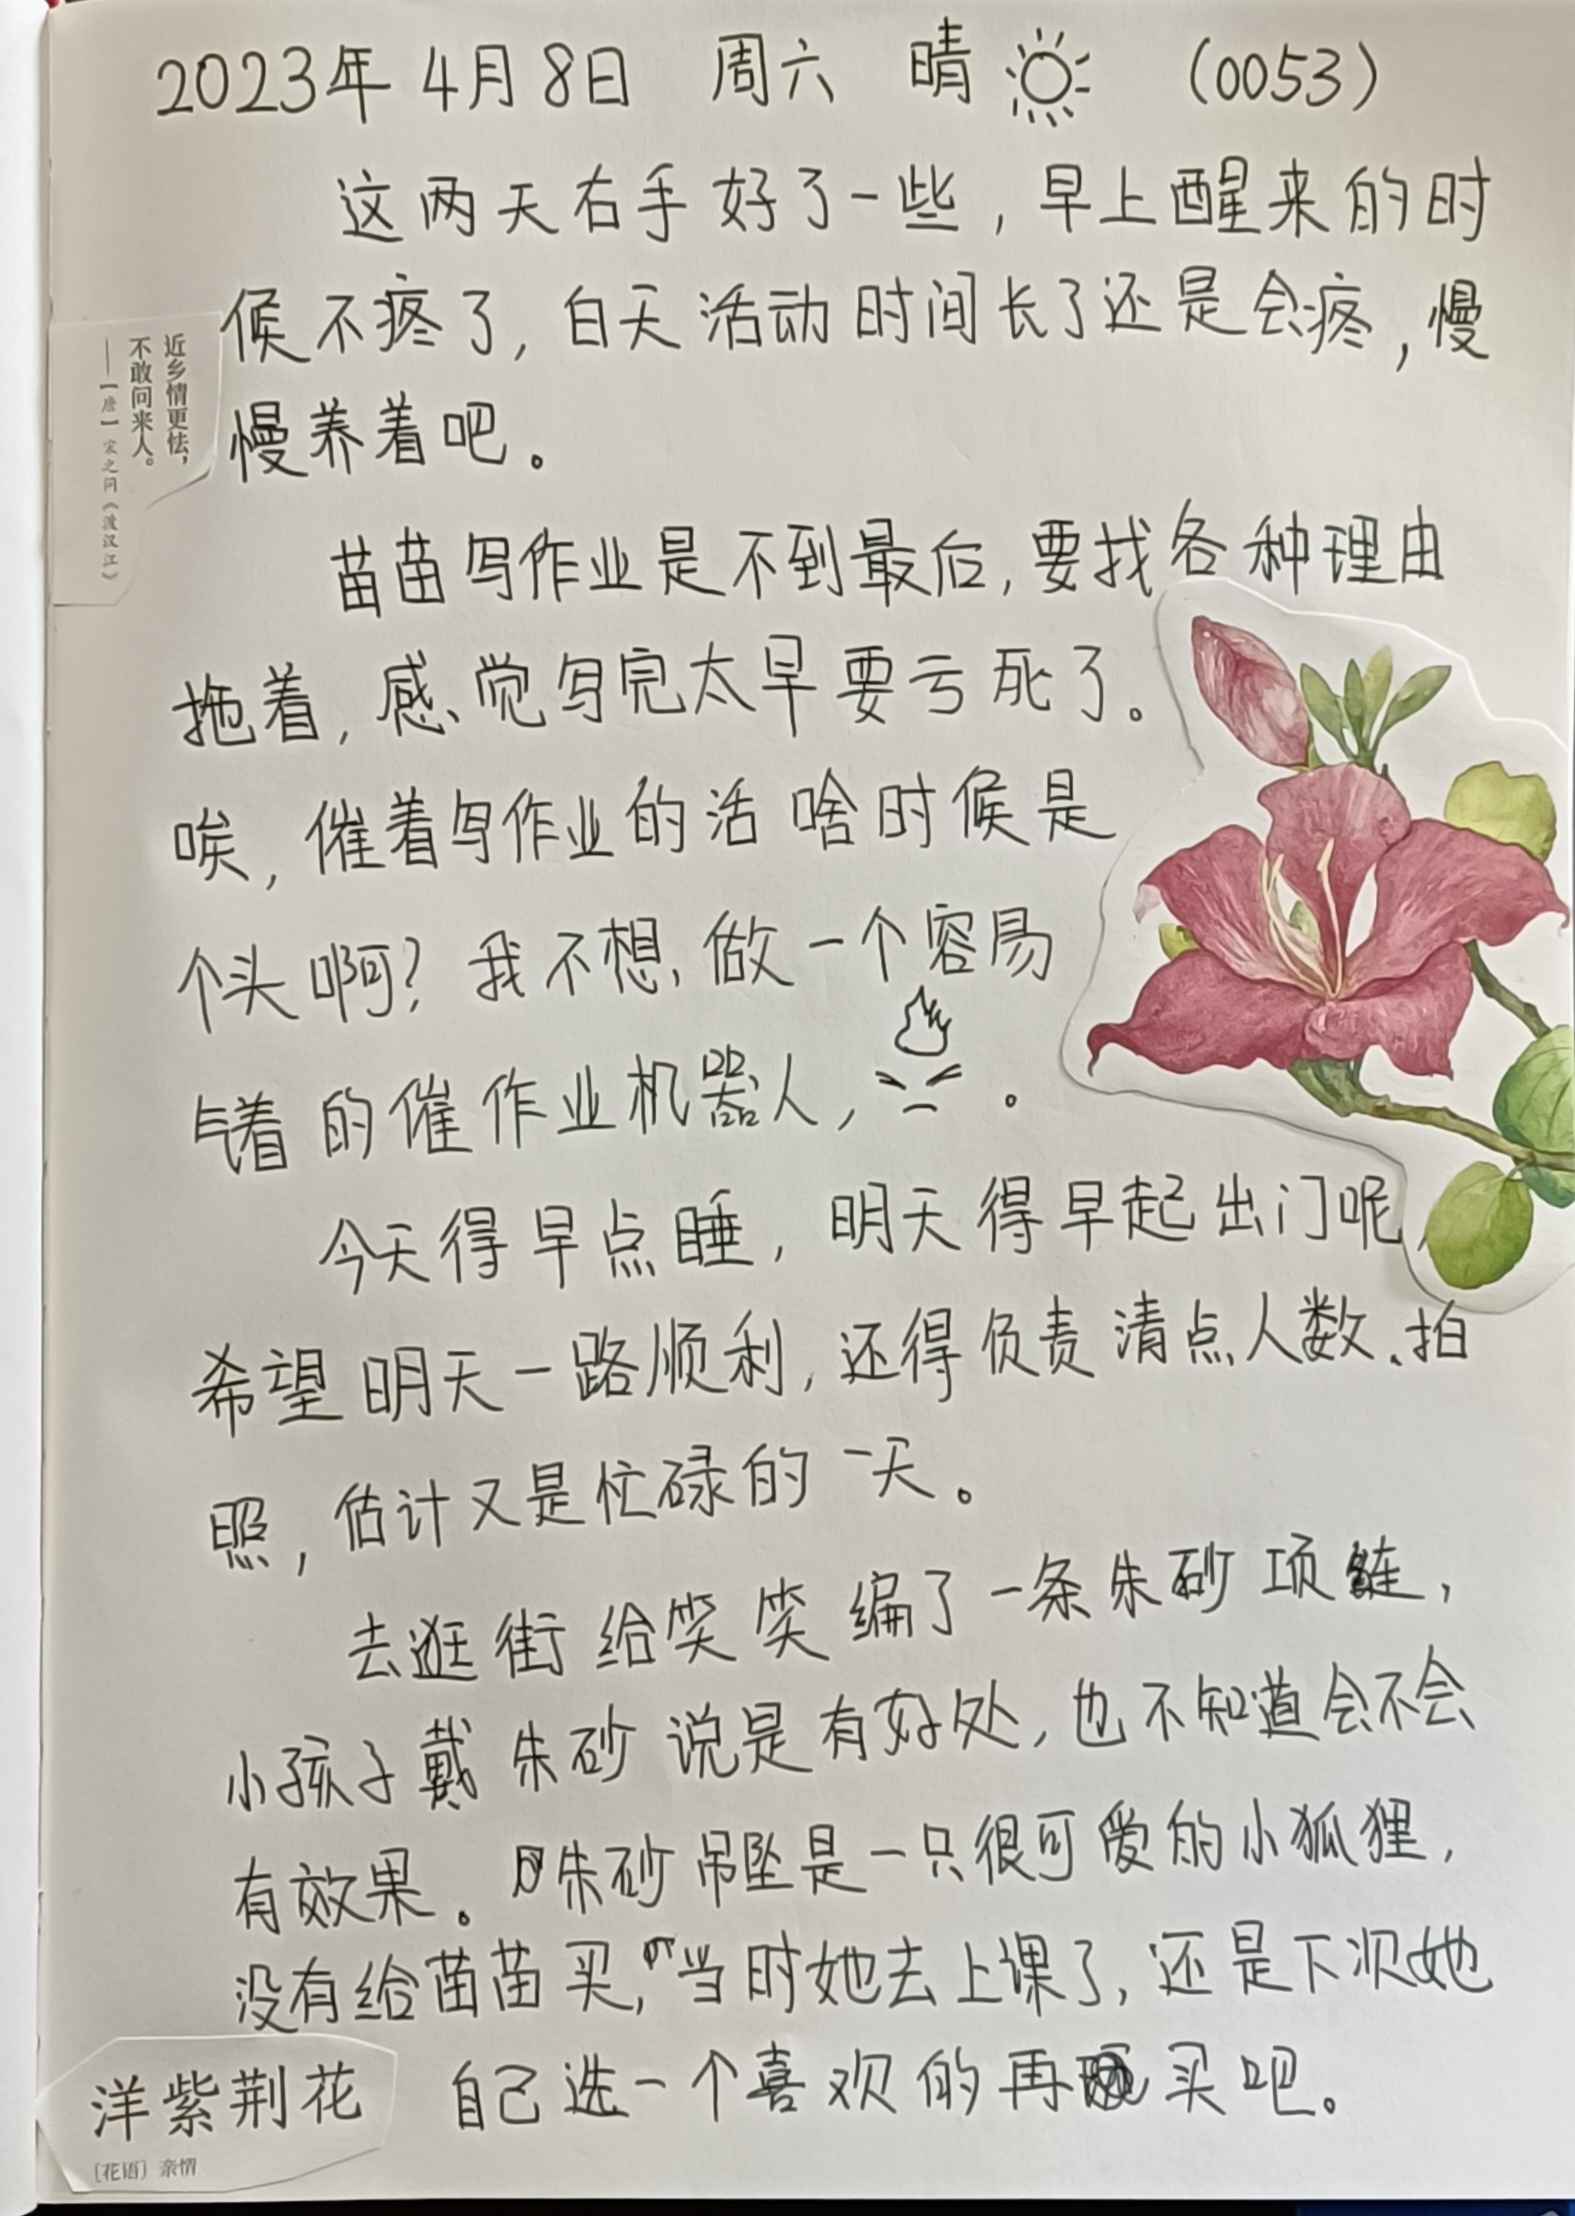 2023年 4月8日 周六 晴 (0053)
这两天右手好了一些，早上醒来的时
候不疼了，白天活动时间长了还是会疼，慢
慢养着吧。
近乡情更怯，
不敢问来人。
——【唐】宋之问《渡汉江》
苗苗写作业是不到最后，要找各种理由
拖着，感觉写完太早要亏死了。
唉，催着写作业的活啥时候是
个头啊？我不想做一个容易
气着的催作业机器人，。
今天得早点睡，明天得早起出门呢，
希望明天一路顺利，还得负责清点人数、拍
照，估计又是忙碌的一天。
去逛街给笑笑编了一条朱砂项链，
小孩子戴朱砂说是有好处，也不知道会不会
有效果。朱砂吊坠是一只很可爱的小狐狸，
没有给苗苗买，当时她去上课了，还是下次她
自己选一个喜欢的再买吧。
洋紫荆花
［花语］亲情